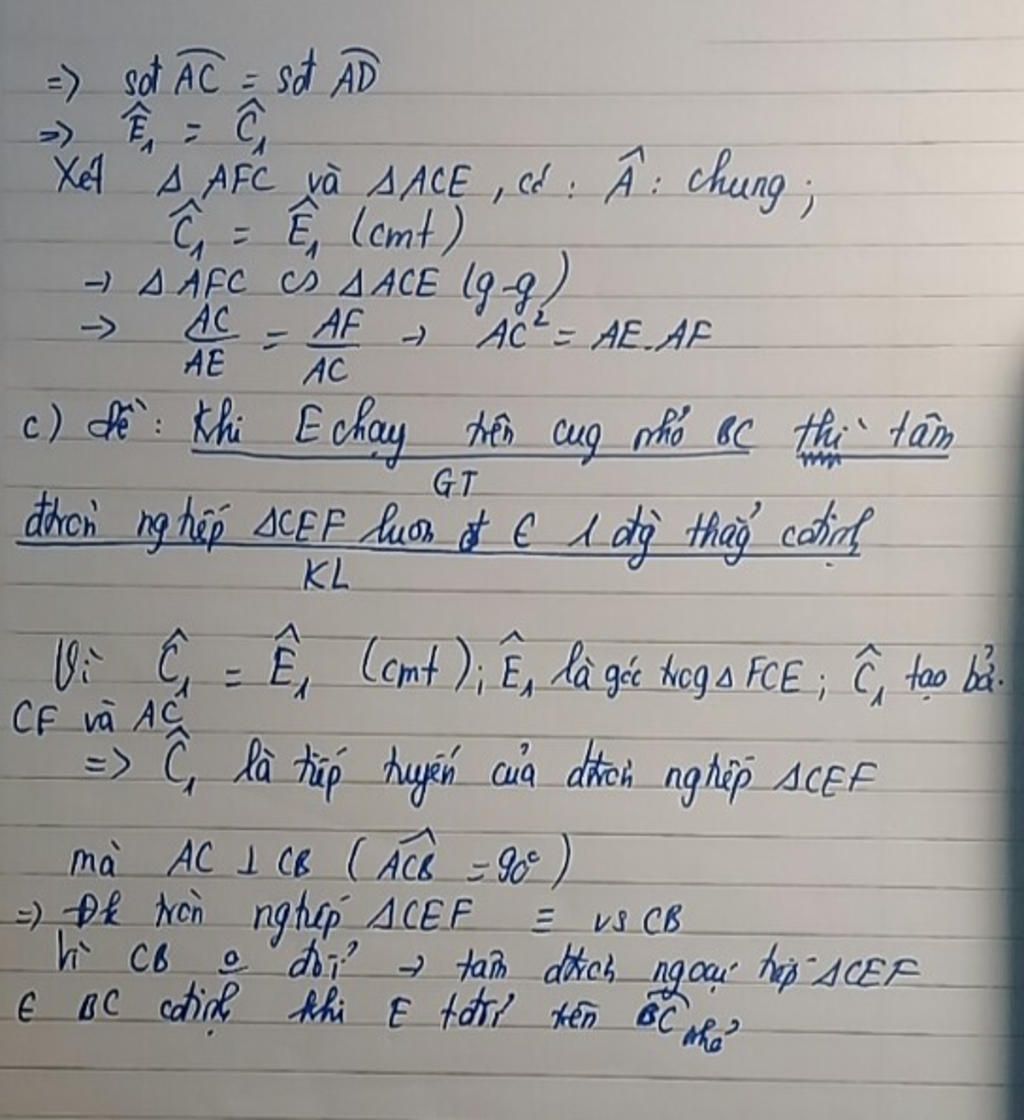 => sđ AC = sđ AD
=> Ê₁ = Ĉ₁
Xét Δ AFC và ΔACE, có: Â: chung;
Ĉ₁ = Ê₁ (cmt)
→ Δ AFC ∽ ΔACE (g-g)
→ AC/AE = AF/AC → AC² = AE.AF
c) đề: Khi E chạy trên cug nhỏ BC thì tâm
GT
đtròn ngtiếp ΔCEF luôn ∈ 1 đg thẳg cđịnh
KL
Vì Ĉ₁ = Ê₁ (cmt); Ê₁ là góc trog Δ FCE; Ĉ₁ tạo bở.
CF và AC
=> Ĉ₁ là tiếp tuyến của đtròn ngtiếp ΔCEF
mà AC ⊥ CB (ACB = 90°)
=> tròn ngtiếp ΔCEF ≡ vs CB
Vì CB o đổi → tâm đtròn ngoại tiếp ΔCEF
∈ BC cđịnh khi E trên BC nhỏ